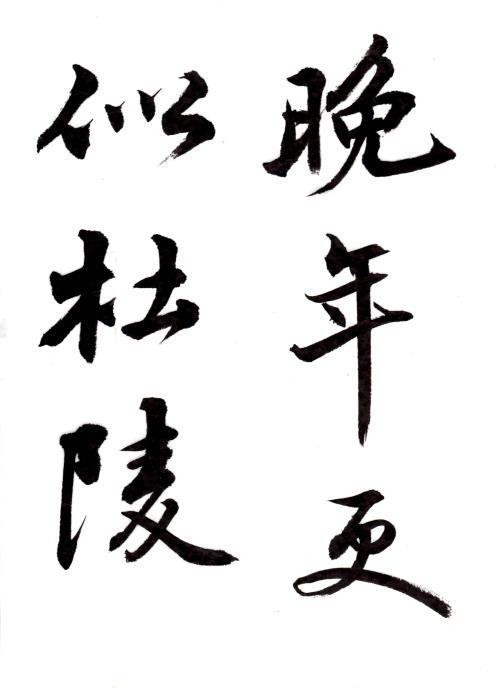 晚年更
似杜陵